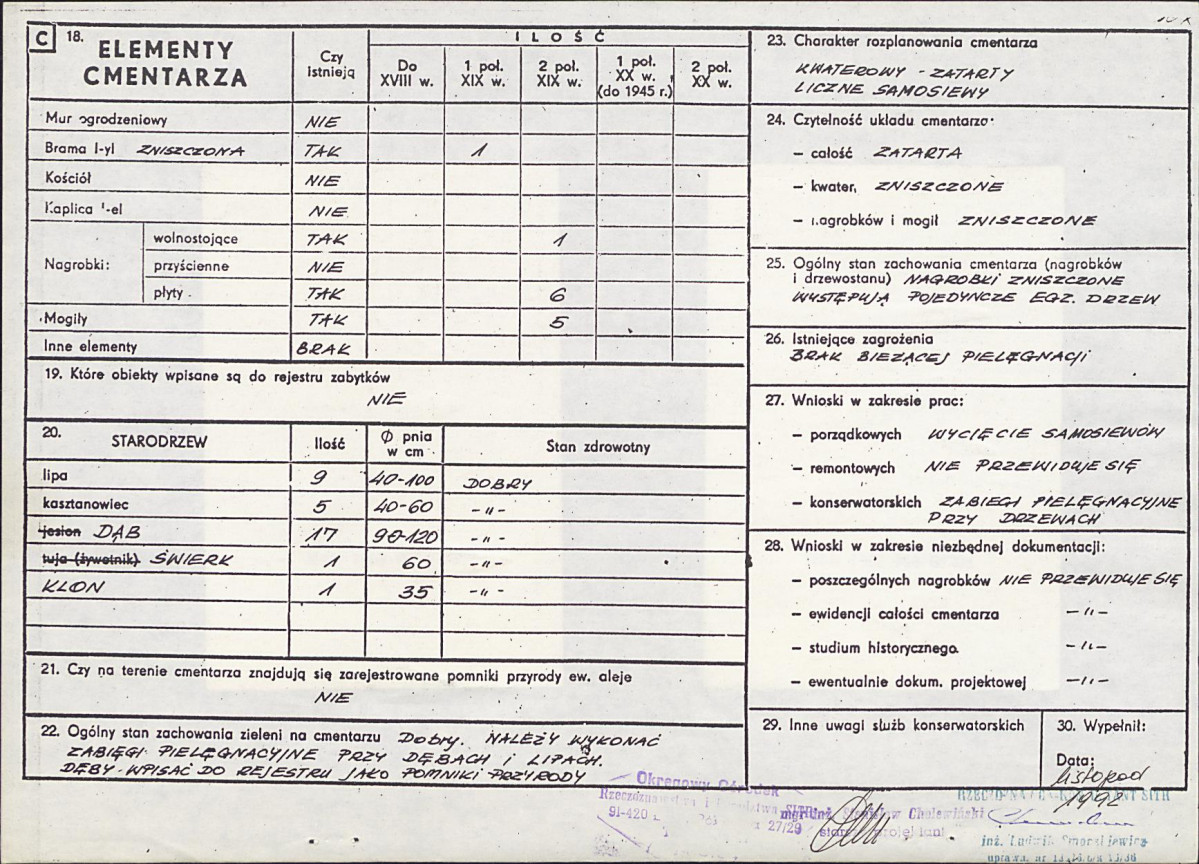 C 18. ELEMENTY CMENTARZA
Czy istnieją
ILOŚĆ
Do XVIII w.
1 poł. XIX w.
2 poł. XIX w.
1 poł. XX w. (do 1945 r.)
2 poł. XX w.
Mur ogrodzeniowy NIE
Brama l-yl ZNISZCZONA TAK 1
Kościół NIE
Kaplica -el NIE
Nagrobki: wolnostojące TAK 1
przyścienne NIE
płyty TAK 6
Mogiły TAK 5
Inne elementy BRAK
19. Które obiekty wpisane są do rejestru zabytków
NIE
20. STARODRZEW Ilość Φ pnia w cm Stan zdrowotny
lipa 9 40-100 DOBRY
kasztanowiec 5 40-60 -"-
jesion DĄB 17 90-120 -"-
tuja (żywotnik) ŚWIERK 1 60 -"-
KLON 1 35 -"-
21. Czy na terenie cmentarza znajdują się zarejestrowane pomniki przyrody ew. aleje
NIE
22. Ogólny stan zachowania zieleni na cmentarzu Dobry. NALEŻY WYKONAĆ
ZABIEGI PIELĘGNACYJNE PRZY DĘBACH I LIPACH.
DĘBY WPISAĆ DO REJESTRU JAKO POMNIKI PRZYRODY
23. Charakter rozplanowania cmentarza
KWATEROWY - ZATARTY
LICZNE SAMOSIEWY
24. Czytelność układu cmentarza
– całość ZATARTA
– kwater, ZNISZCZONE
– nagrobków i mogił ZNISZCZONE
25. Ogólny stan zachowania cmentarza (nagrobków
i drzewostanu) NAGROBKI ZNISZCZONE
WYSTĘPUJĄ POJEDYNCZE EGZ. DRZEW
26. Istniejące zagrożenia
BRAK BIEŻĄCEJ PIELĘGNACJI
27. Wnioski w zakresie prac:
– porządkowych WYCIĘCIE SAMOSIEWÓW
– remontowych NIE PRZEWIDUJE SIĘ
– konserwatorskich ZABIEGI PIELĘGNACYJNE
PRZY DRZEWACH
28. Wnioski w zakresie niezbędnej dokumentacji:
– poszczególnych nagrobków NIE PRZEWIDUJE SIĘ
– ewidencji całości cmentarza -"-
– studium historycznego -"-
– ewentualnie dokum. projektowej -"-
29. Inne uwagi służb konserwatorskich
30. Wypełnił:
Data:
Listopad
1992
Okręgowy Ośrodek
91-420
27/29
mgr inż. Stanisław Chalewiński
SITR
inż. Ludwik